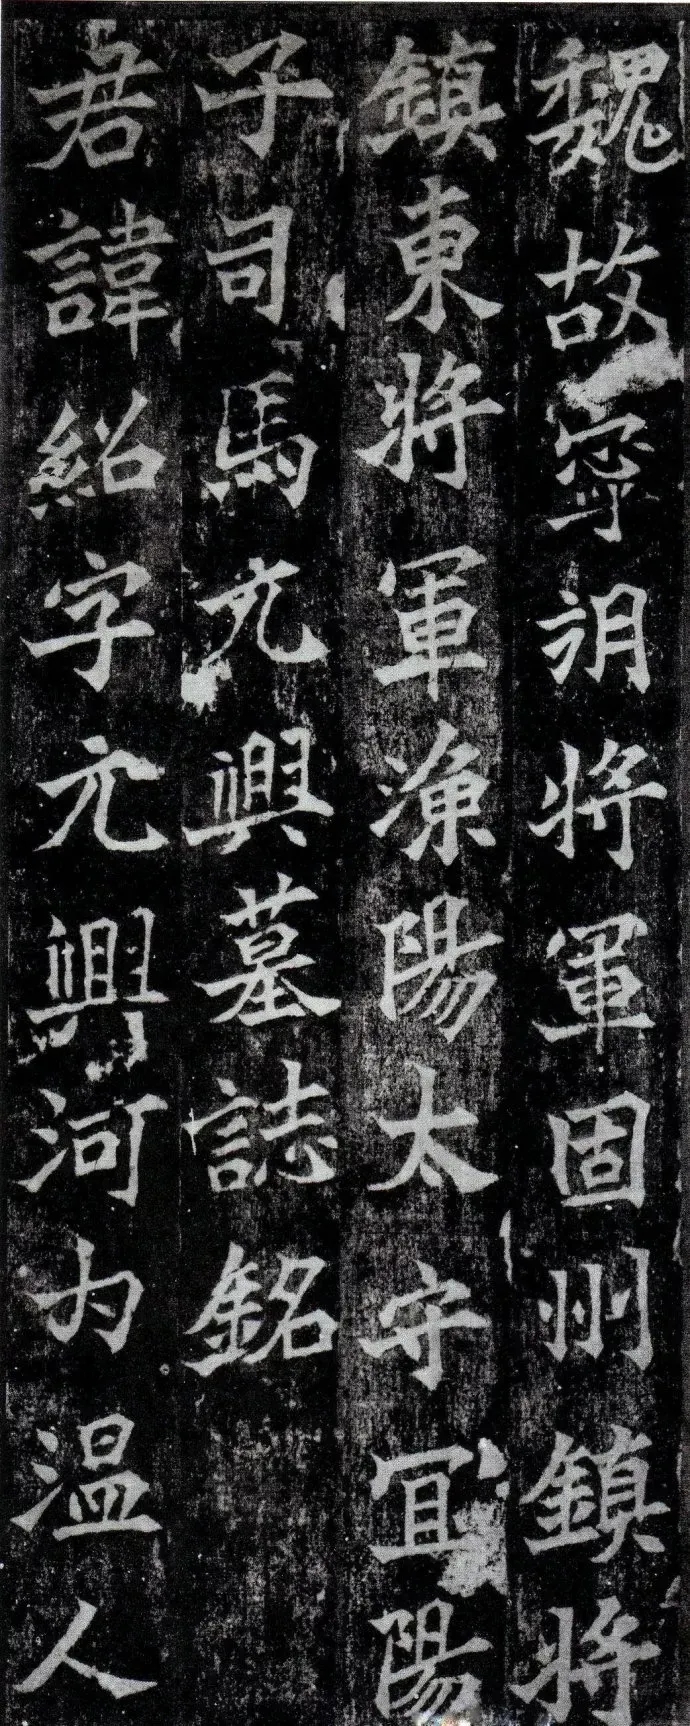 魏故寧朔將軍固州鎮將
鎮東將軍漁陽太守宜陽
子司馬元興墓誌銘
君諱紹字元興河内温人